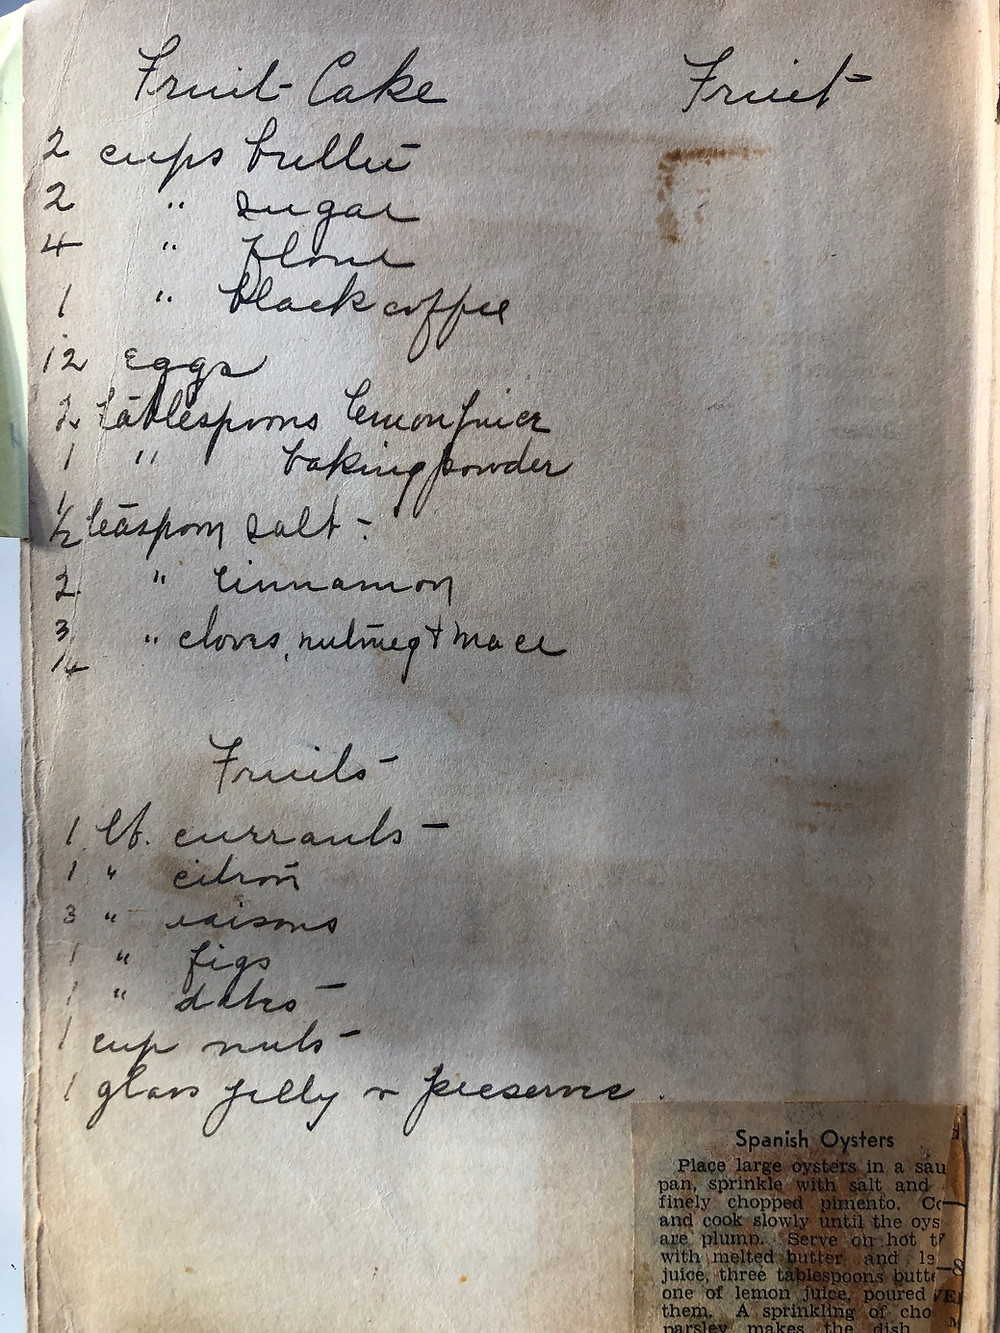 Fruit Cake
Fruit
2 cups butter
2 " sugar
4 " Flour
1 " black coffee
12 eggs
2 tablespoons lemon juice
1 " baking powder
1/2 teaspoon salt -
2 " Cinnamon
3/4 " cloves, nutmeg + mace
Fruits
1 lb. currants
1 " citron
3 " raisons
1 " figs
1 " dates
1 cup nuts
1 glass jelly or preserve
Spanish Oysters
Place large oysters in a
pan, sprinkle with salt and
finely chopped pimento.
and cook slowly until the
are plump. Serve on hot
with melted butter and
juice, three tablespoons
one of lemon juice, poured
them. A sprinkling of
parsley makes the dish